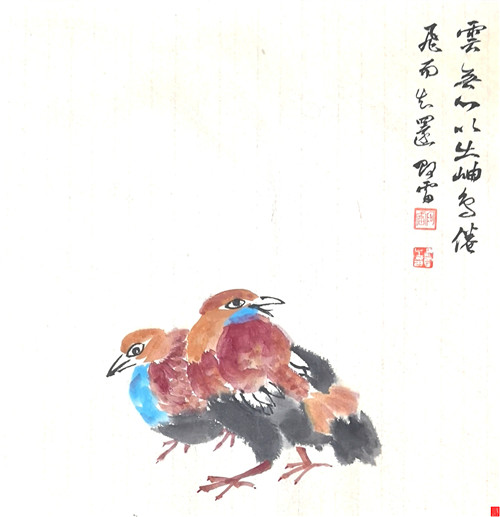 雲無心以出岫鳥倦
飛而知還